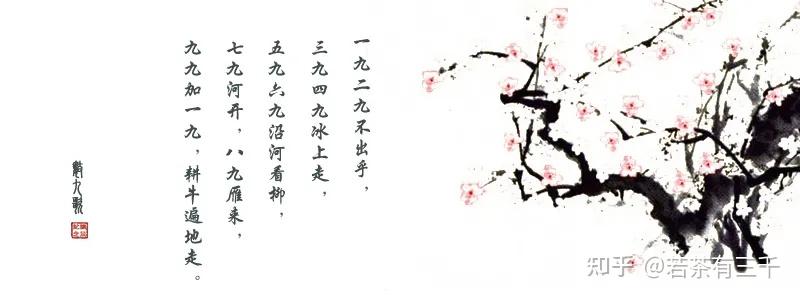 一九二九不出乎，
三九四九冰上走，
五九六九沿河看柳，
七九河开，八九雁来，
九九加一九，耕牛遍地走。
数九歌
知乎 @若茶有三千